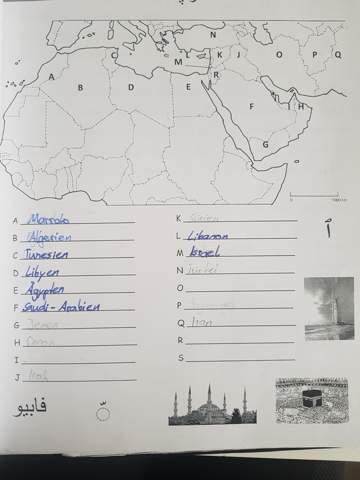 N
C
L K J O P Q
M
A R
B D E
F I H
G
A Marroko
B Algerien
C Tunesien
D Libyen
E Ägypten
F Saudi-Arabien
G Jemen
H Oman
I
J Irak
K Syrien
L Libanon
M Israel
N Türkei
O
P
Q Iran
R
S
أ
فابيو